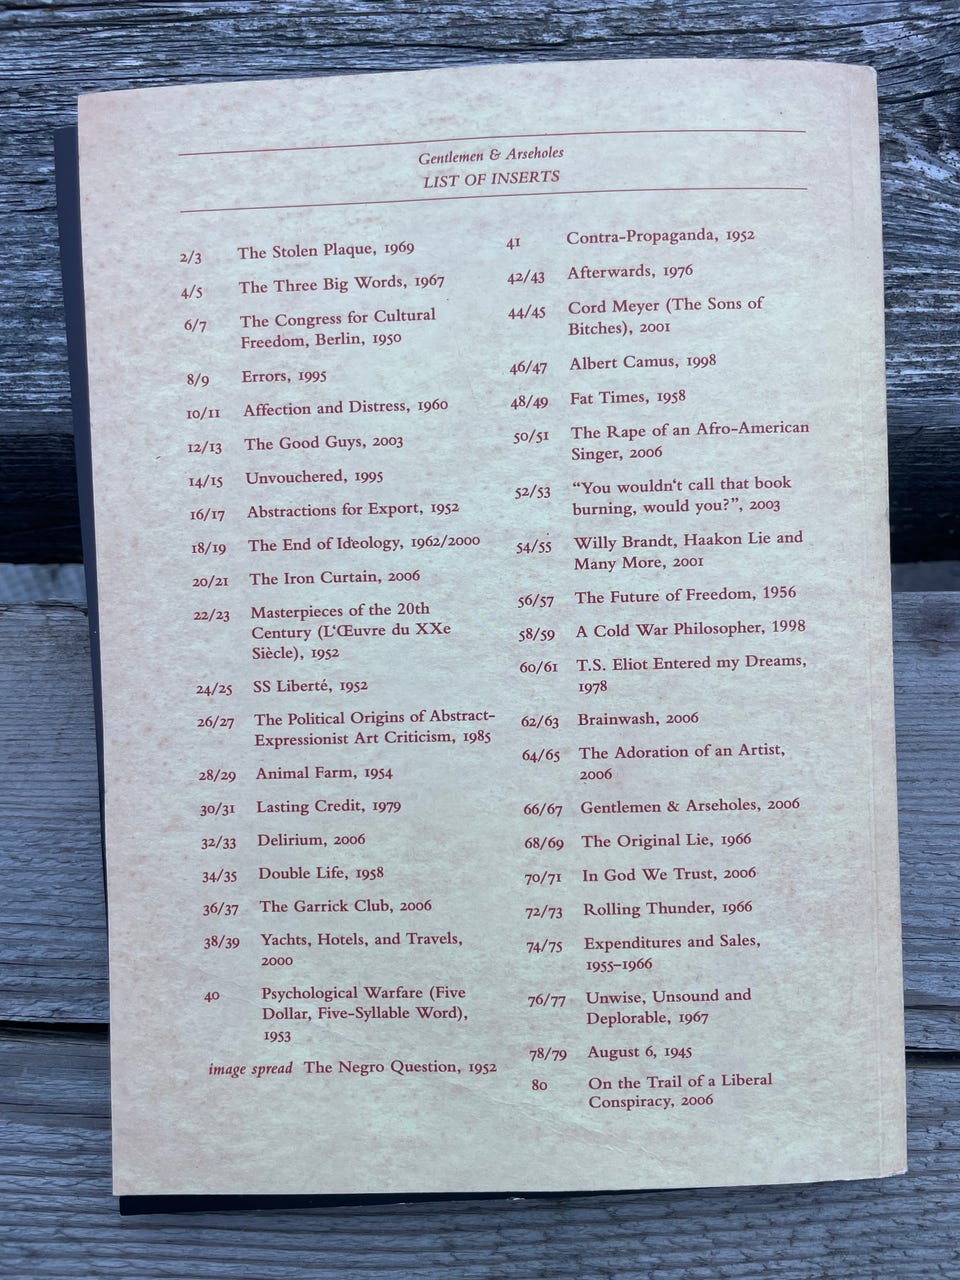 Gentlemen & Arseholes
LIST OF INSERTS
2/3 The Stolen Plaque, 1969
4/5 The Three Big Words, 1967
6/7 The Congress for Cultural
Freedom, Berlin, 1950
8/9 Errors, 1995
10/11 Affection and Distress, 1960
12/13 The Good Guys, 2003
14/15 Unvouchered, 1995
16/17 Abstractions for Export, 1952
18/19 The End of Ideology, 1962/2000
20/21 The Iron Curtain, 2006
22/23 Masterpieces of the 20th
Century (L‘Œuvre du XXe
Siècle), 1952
24/25 SS Liberté, 1952
26/27 The Political Origins of Abstract-
Expressionist Art Criticism, 1985
28/29 Animal Farm, 1954
30/31 Lasting Credit, 1979
32/33 Delirium, 2006
34/35 Double Life, 1958
36/37 The Garrick Club, 2006
38/39 Yachts, Hotels, and Travels,
2000
40 Psychological Warfare (Five
Dollar, Five-Syllable Word),
1953
image spread The Negro Question, 1952
41 Contra-Propaganda, 1952
42/43 Afterwards, 1976
44/45 Cord Meyer (The Sons of
Bitches), 2001
46/47 Albert Camus, 1998
48/49 Fat Times, 1958
50/51 The Rape of an Afro-American
Singer, 2006
52/53 “You wouldn‘t call that book
burning, would you?”, 2003
54/55 Willy Brandt, Haakon Lie and
Many More, 2001
56/57 The Future of Freedom, 1956
58/59 A Cold War Philosopher, 1998
60/61 T.S. Eliot Entered my Dreams,
1978
62/63 Brainwash, 2006
64/65 The Adoration of an Artist,
2006
66/67 Gentlemen & Arseholes, 2006
68/69 The Original Lie, 1966
70/71 In God We Trust, 2006
72/73 Rolling Thunder, 1966
74/75 Expenditures and Sales,
1955–1966
76/77 Unwise, Unsound and
Deplorable, 1967
78/79 August 6, 1945
80 On the Trail of a Liberal
Conspiracy, 2006